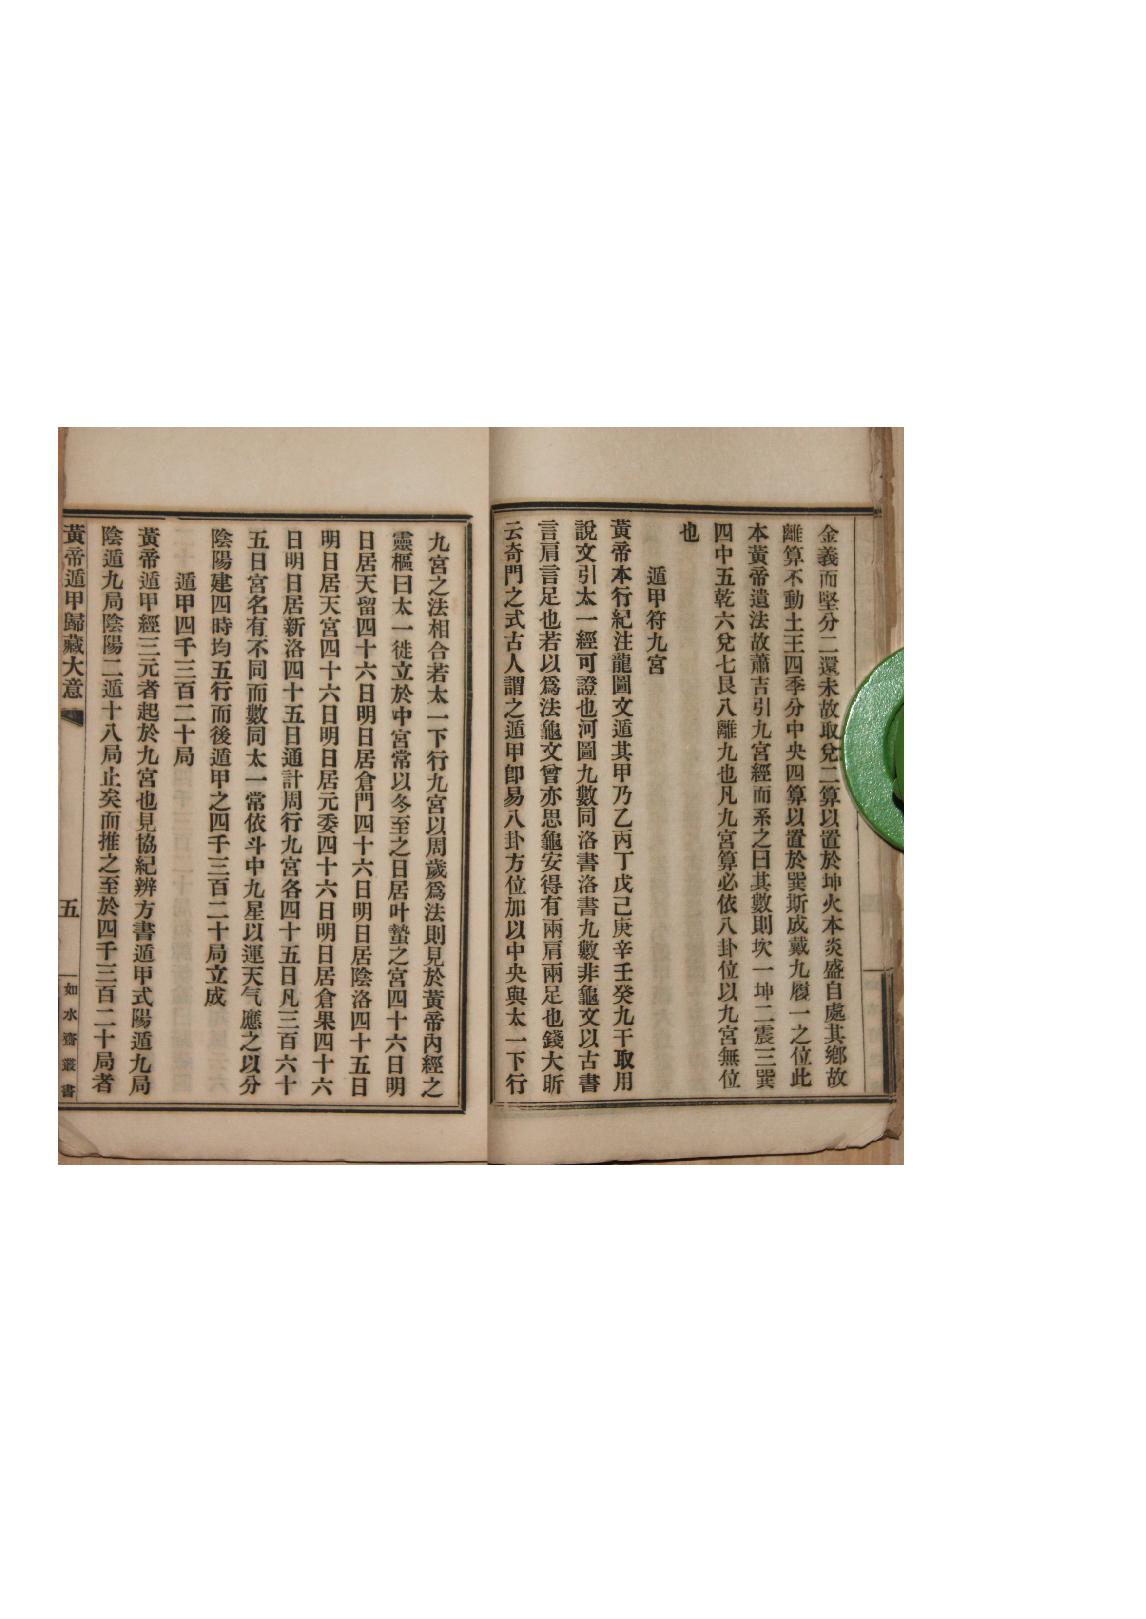 金義而堅分二還未故取兌二算以置於坤火本炎盛自處其鄉故
離算不動土王四季分中央四算以置於巽斯成戴九履一之位此
本黃帝遺法故蕭吉引九宮經而系之曰其數則坎一坤二震三巽
四中五乾六兌七艮八離九也凡九宮算必依八卦位以九宮無位
也
遁甲符九宮
黃帝本行紀注龍圖文遁其甲乃乙丙丁戊己庚辛壬癸九干取用
說文引太一經可證也河圖九數同洛書洛書九數非龜文以古書
言肩言足也若以爲法龜文曾亦思龜安得有兩肩兩足也錢大昕
云奇門之式古人謂之遁甲卽易八卦方位加以中央與太一下行
九宮之法相合若太一下行九宮以周歲爲法則見於黃帝內經之
靈樞曰太一徙立於中宮常以冬至之日居叶蟄之宮四十六日明
日居天留四十六日明日居倉門四十六日明日居陰洛四十五日
明日居天宮四十六日明日居元委四十六日明日居倉果四十六
日明日居新洛四十五日通計周行九宮各四十五日凡三百六十
五日宮名有不同而數同太一常依斗中九星以運天气應之以分
陰陽建四時均五行而後遁甲之四千三百二十局立成
遁甲四千三百二十局
黃帝遁甲經三元者起於九宮也見協紀辨方書遁甲式陽遁九局
陰遁九局陰陽二遁十八局止矣而推之至於四千三百二十局者
黃帝遁甲歸藏大意
五
如水齋叢書